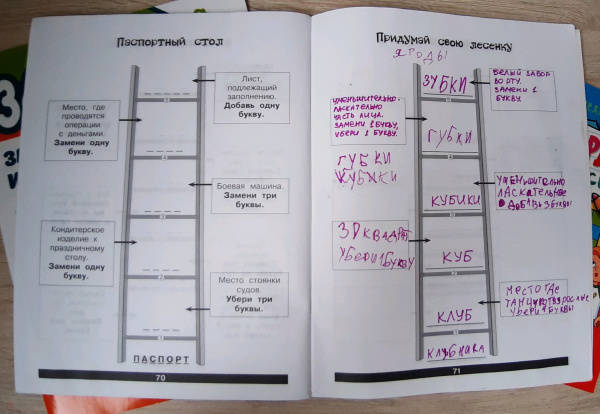 Паспортный стол
Лист,
подлежащий
заполнению.
Добавь одну
букву.
Место, где
проводятся
операции
с деньгами.
Замени одну
букву.
Боевая машина.
Замени три
буквы.
Кондитерское
изделие к
праздничному
столу.
Замени одну
букву.
Место стоянки
судов.
Убери три
буквы.
ПАСПОРТ
70
Придумай свою лесенку
ЯГОДЫ
ЗУБКИ
БЕЛЫЙ ЗАБОР
ВО РТУ.
ЗАМЕНИ 1
БУКВУ.
УМЕНЬШИТЕЛЬНО-
ЛАСКАТЕЛЬНО
ЧАСТЬ ЛИЦА.
ЗАМЕНИ 1 БУКВУ,
УБЕРИ 1 БУКВУ.
ГУБКИ
ГУБКИ
КУБИКИ
УМЕНЬШИТЕЛЬНО
ЛАСКАТЕЛЬНОЕ
ДОБАВЬ 3 БУКВЫ
КУБИКИ
3D КВАДРАТ
УБЕРИ 1 БУКВУ
КУБ
МЕСТО ГДЕ
ТАНЦУЮТ ВЗРОСЛЫЕ
УБЕРИ БУКВЫ
КЛУБ
КЛУБНИКА
71